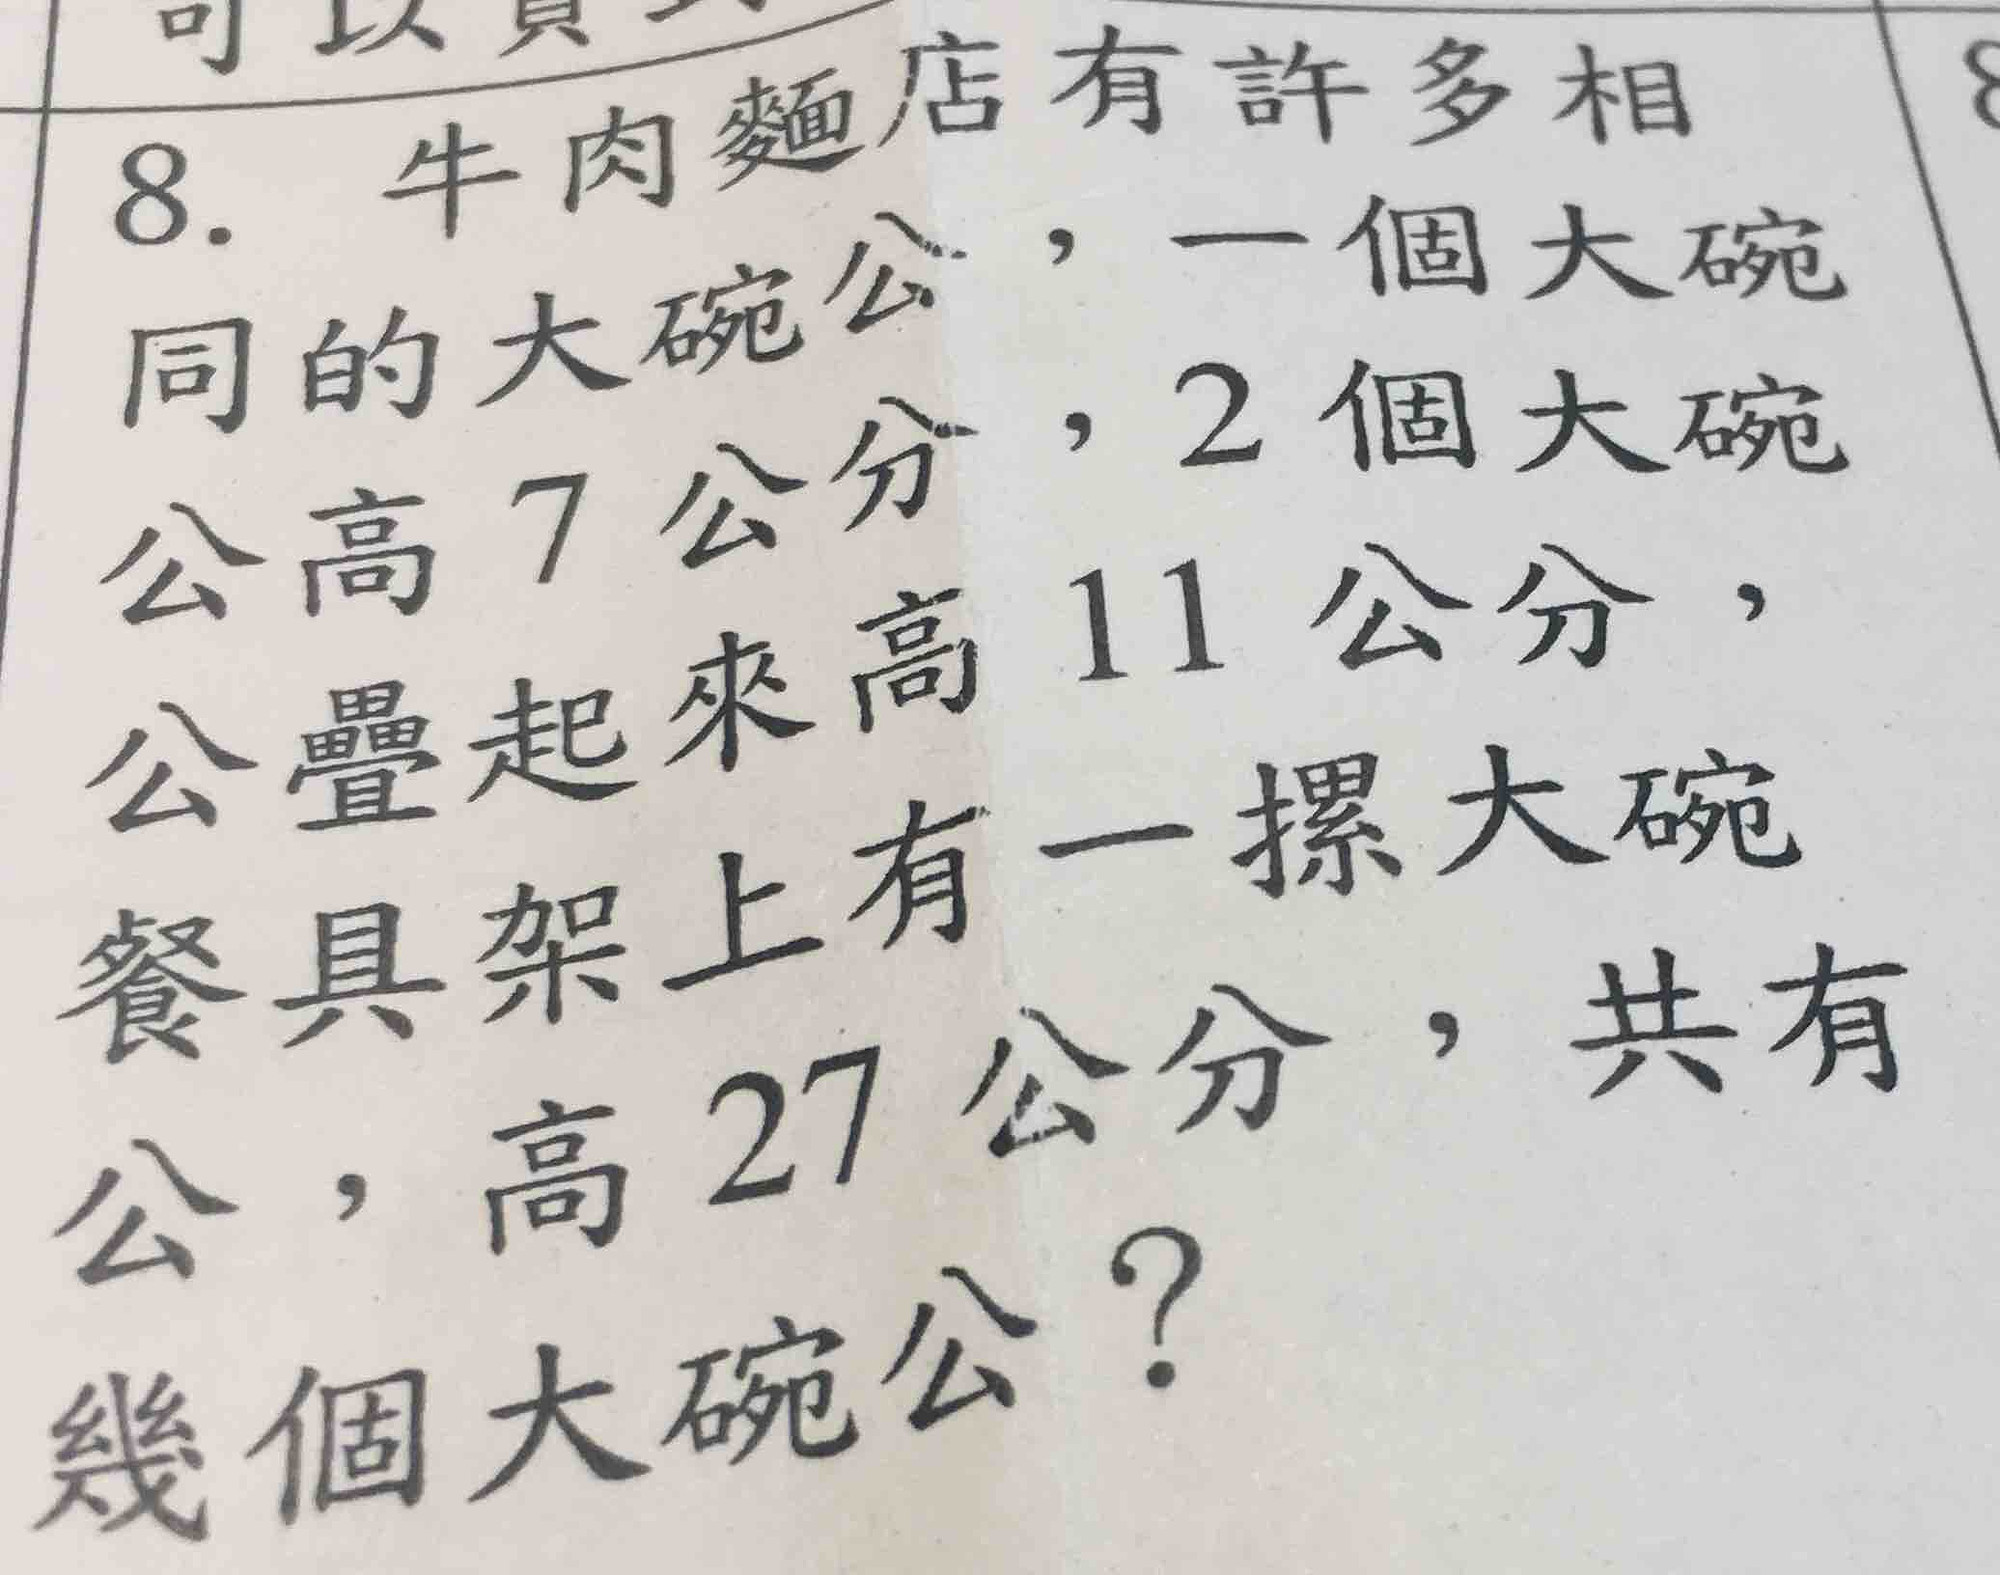 8. 牛肉麵店有許多相
同的大碗公，一個大碗
公高7公分，2個大碗
公疊起來高11公分，
餐具架上有一摞大碗
公，高27公分，共有
幾個大碗公？